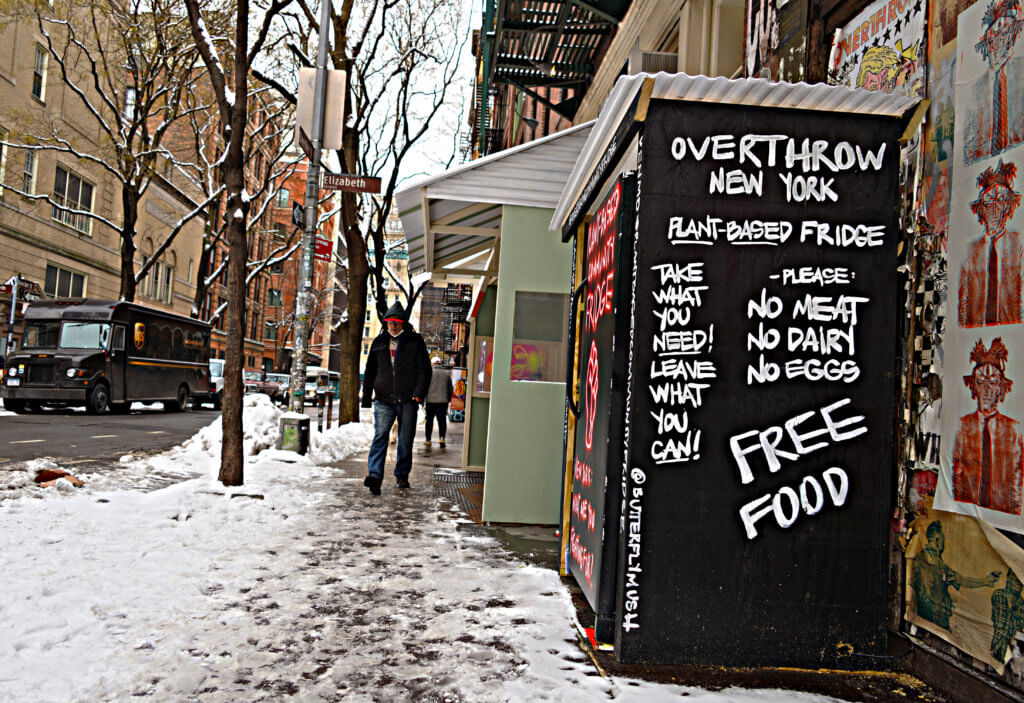 OVERTHROW
NEW YORK
PLANT-BASED FRIDGE
TAKE
WHAT
YOU
NEED!
LEAVE
WHAT
YOU
CAN!
-PLEASE:
NO MEAT
NO DAIRY
NO EGGS
FREE
FOOD
@BUTTERFLYMUSH
PLANT-BASED
COMMUNITY
FRIDGE
Elizabeth
ups
OVERTHROW